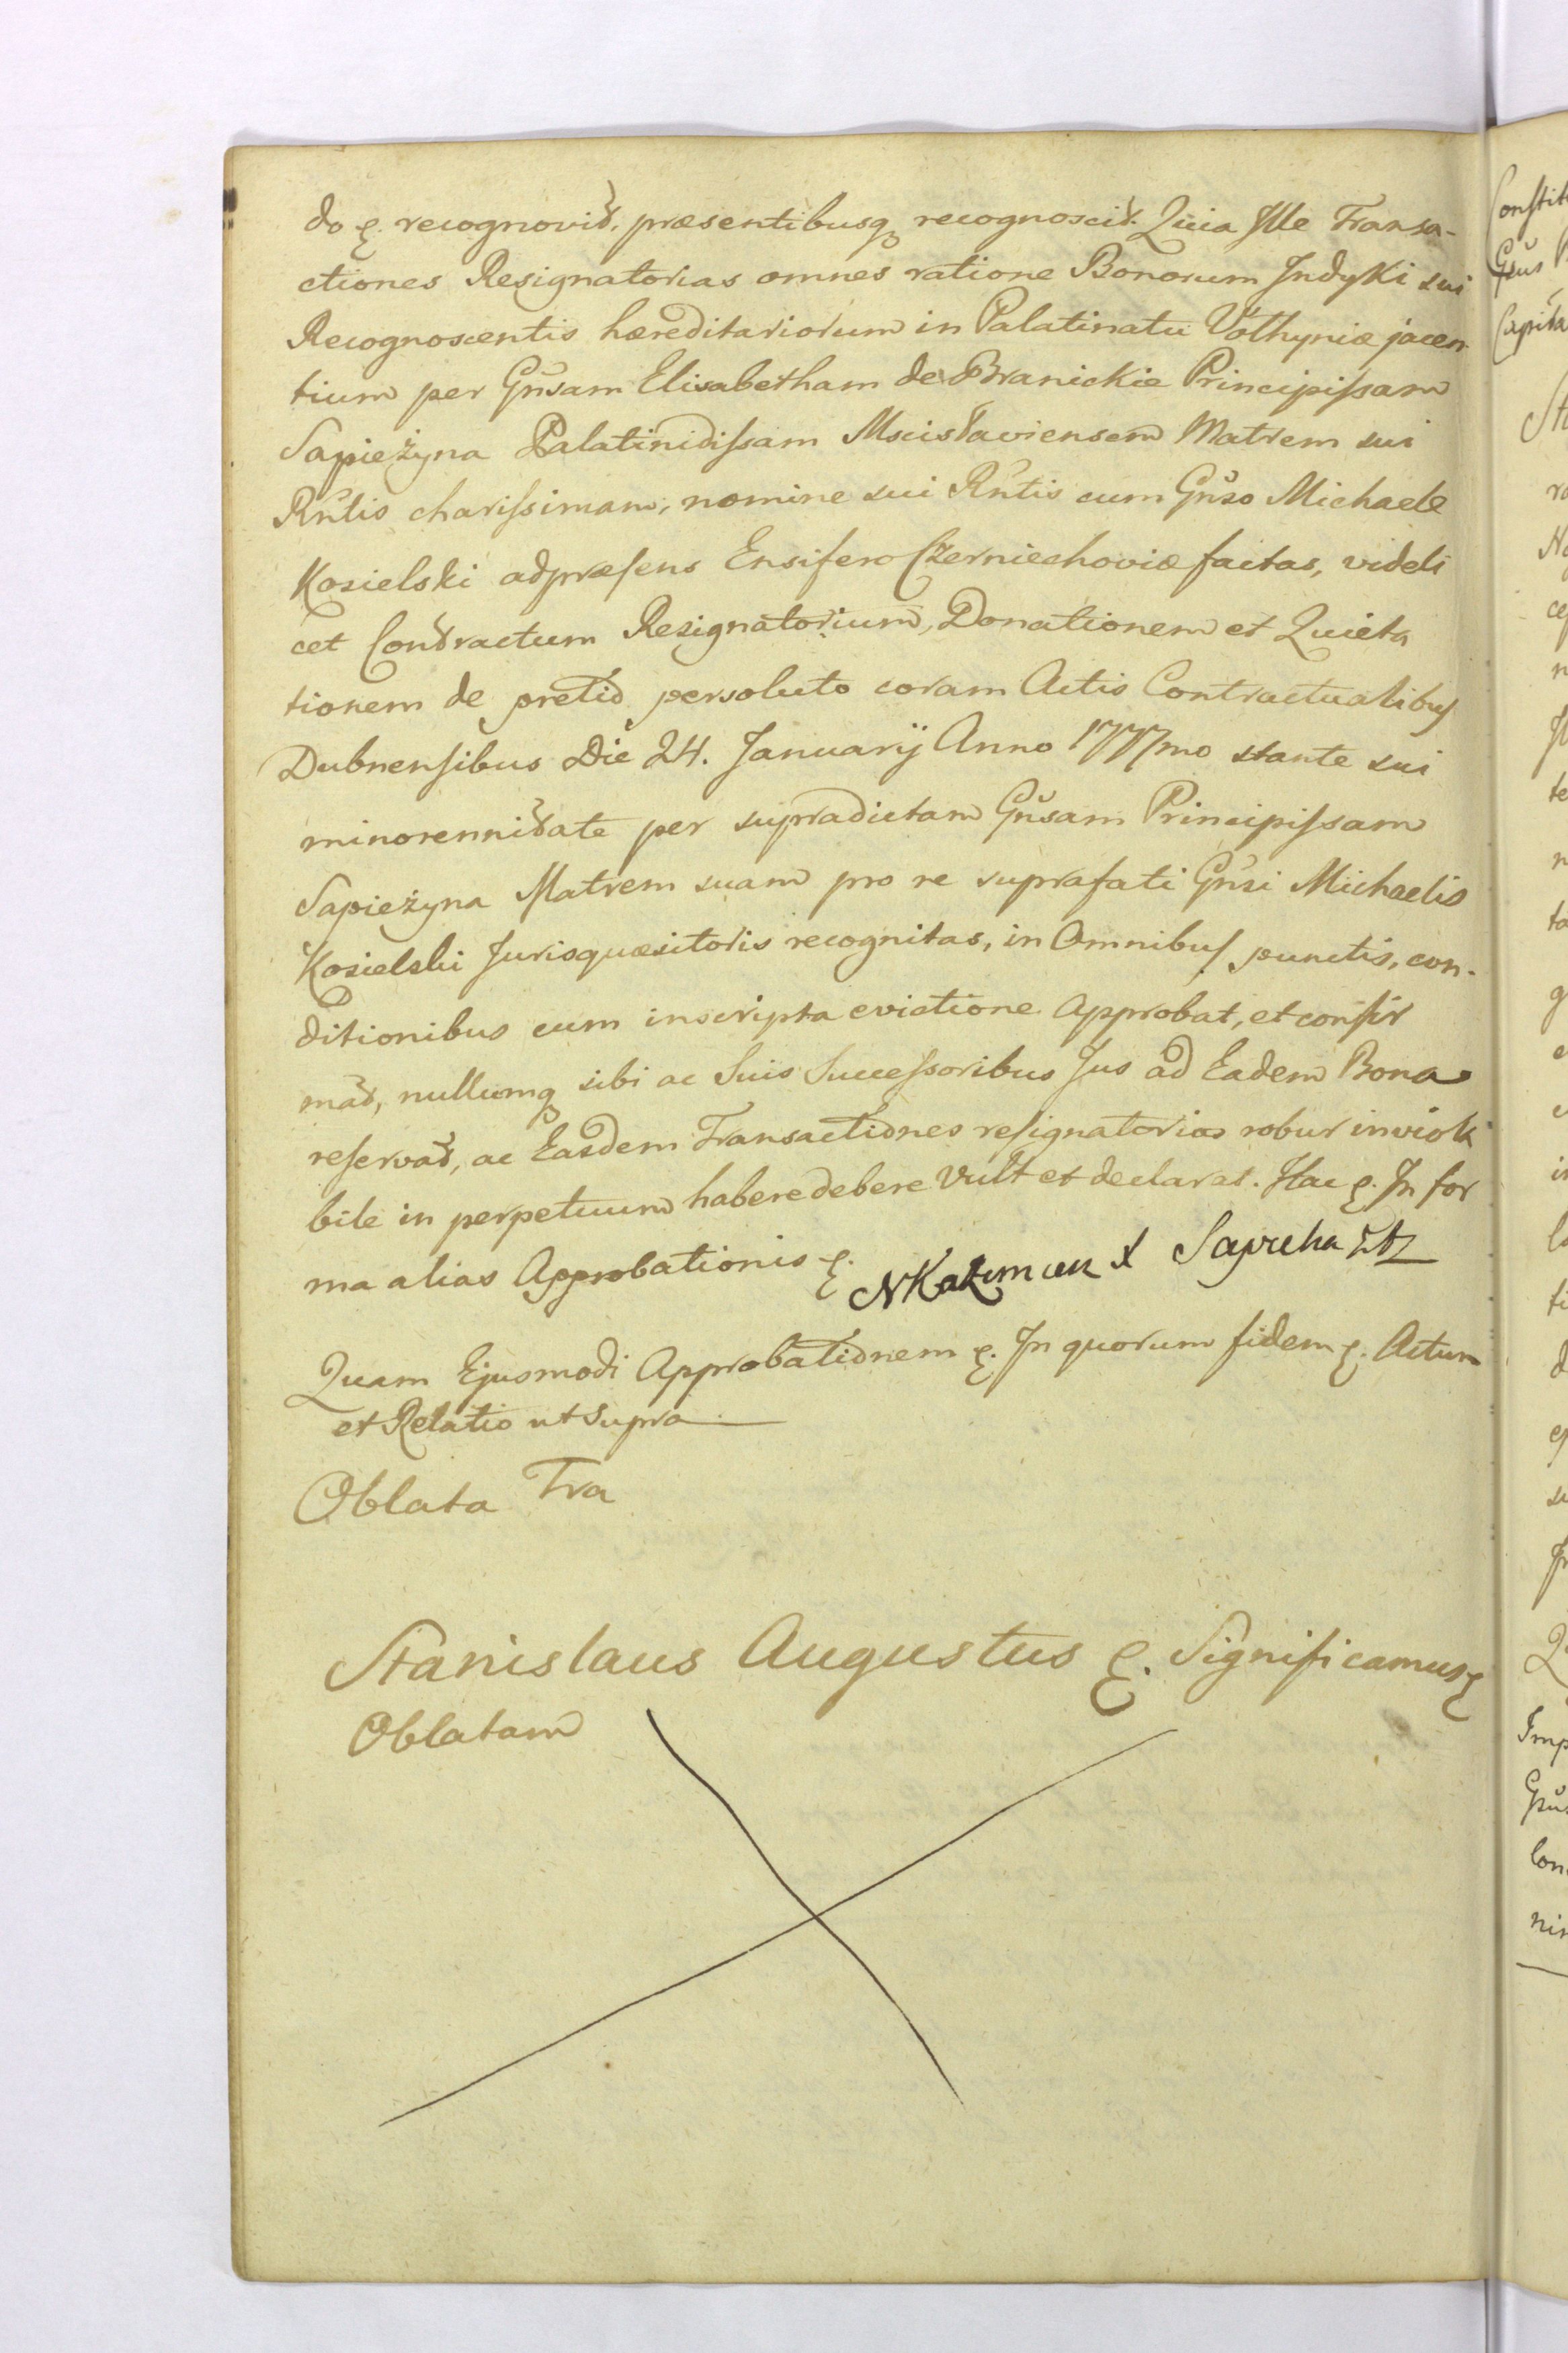 do &. recognovit, præsentibusq recognoscit. Quia Ille Transa-
ctiones Resignatorias omnes ratione Bonorum Indyki sui
Recognoscentis hæreditariorum in Palatinatu Volhyniæ jacen-
tium per Gnsam Elisabetham de Branickie Principissam
Sapieżyna Palatinidissam Mscislaviensem Matrem sui
Rntis charissimam, nomine sui Rntis cum Gnso Michaele
Kosielski adpræsens Ensifero Czerniechoviæ factas, videli
cet Contractum Resignatorium, Donationem et Quieta
tionem de pretio persoluto coram Actis Contractualibus
Dubnensibus Die 24. Januarij Anno 1777mo stante sui
minorennitate per supradictam Gnsam Principissam
Sapieżyna Matrem suam pro re suprafati Gnsi Michaelis
Kosielski Jurisquæsitoris recognitas, in Omnibus punctis, con-
ditionibus cum inscripta evictione Approbat, et confir
mat, nullumq sibi ac Suis Successoribus Jus ad Eadem Bona
reservat, ac Easdem Transactiones resignatorias robur inviola
bile in perpetuum habere debere Vult et declarat. Hac &. In for
ma alias Approbationis &.
Sapieha
Quam Ejusmodi Approbationem &. In quorum fidem &. Actum
et Relatio ut supra
Oblata Tra
Stanislaus Augustus &. Significamus &
Oblatam